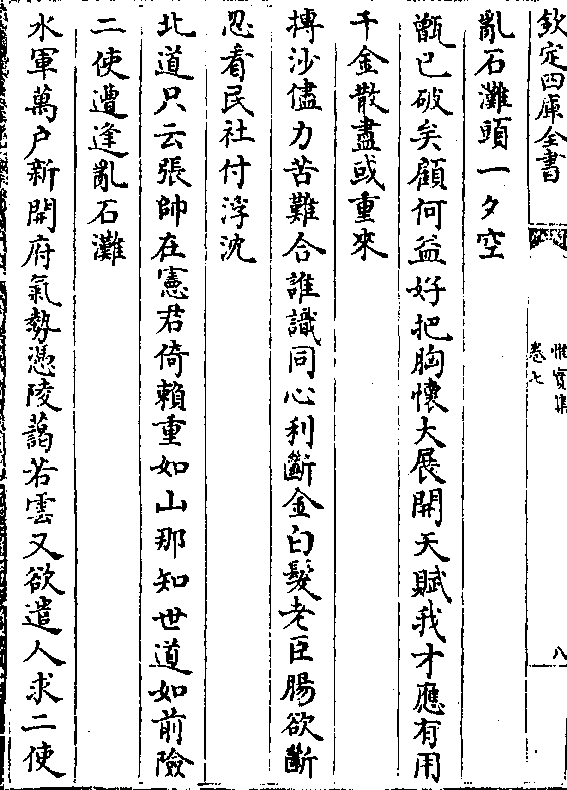 欽定四庫全書
惟實集
卷七
八
亂石灘頭一夕空
甑已破矣顧何益好把胸懷大展開天賦我才應有用
千金散盡或重來
摶沙儘力苦難合誰識同心利斷金白髮老臣腸欲斷
忍看民社付浮沈
北道只云張帥在憲君倚賴重如山那知世道如前險
二使遭逢亂石灘
水軍萬户新開府氣勢憑陵藹若雲又欲遣人求二使